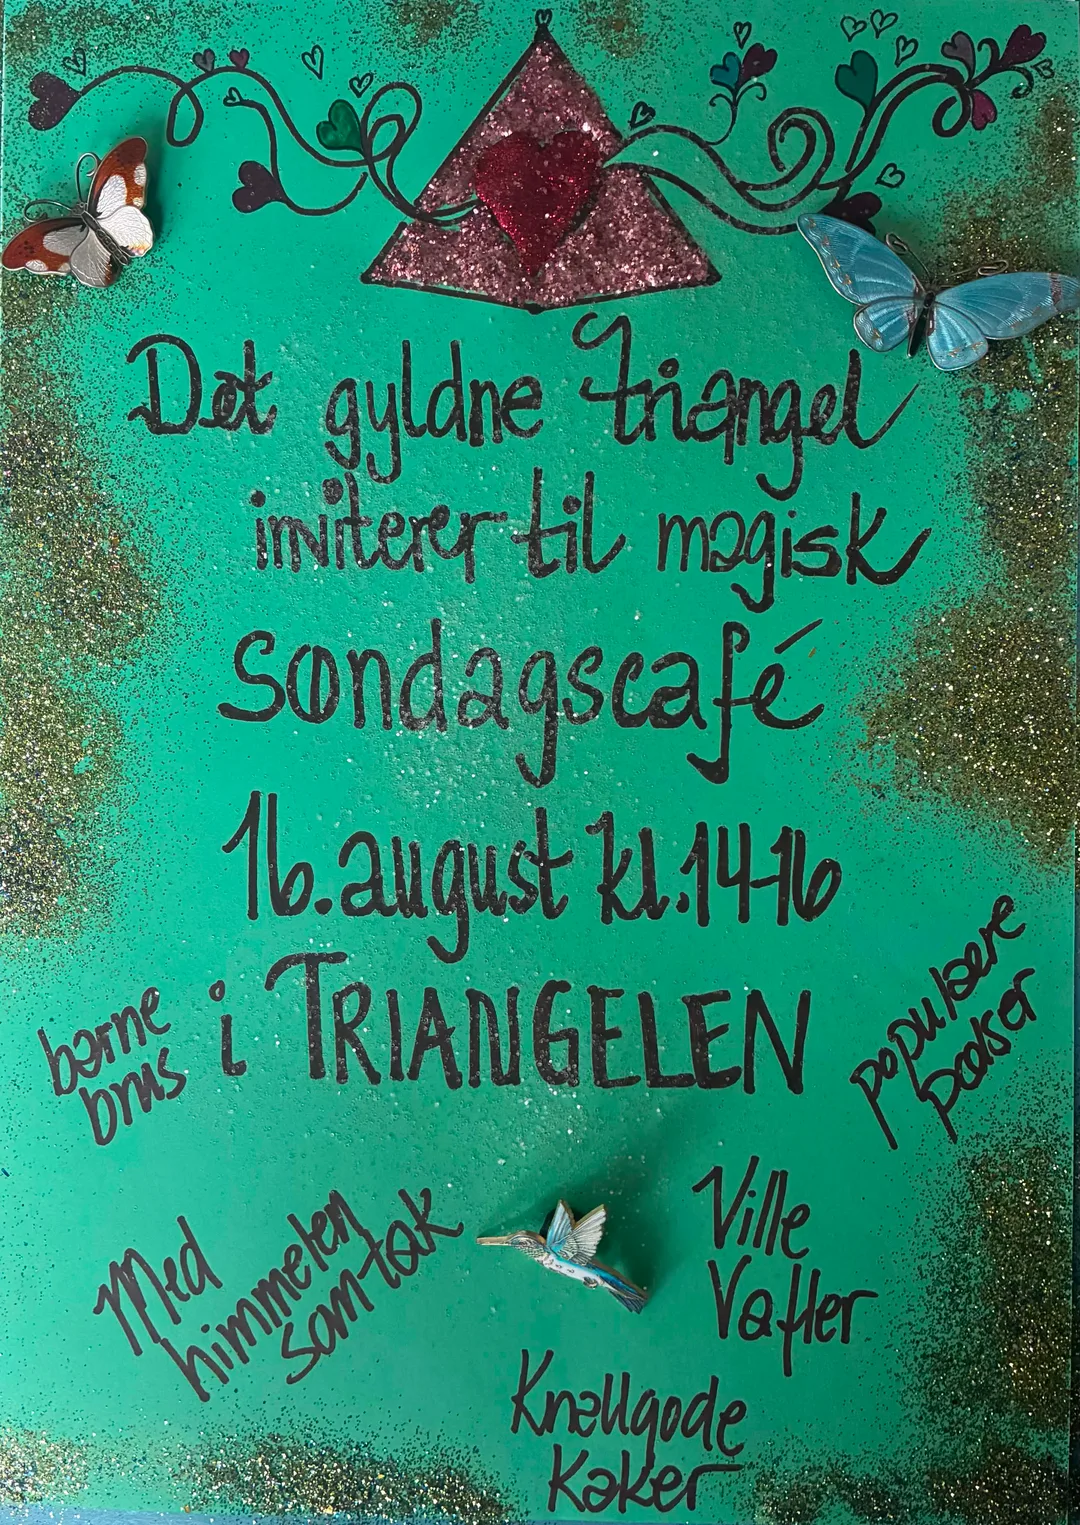 Det gyldne triangel
inviterer til magisk
søndagscafé
16. august kl. 14-16
i TRIANGELEN
barne
brus
populære
pølser
Med
himmelen
som tak
Ville
Vafler
Knallgode
Kaker